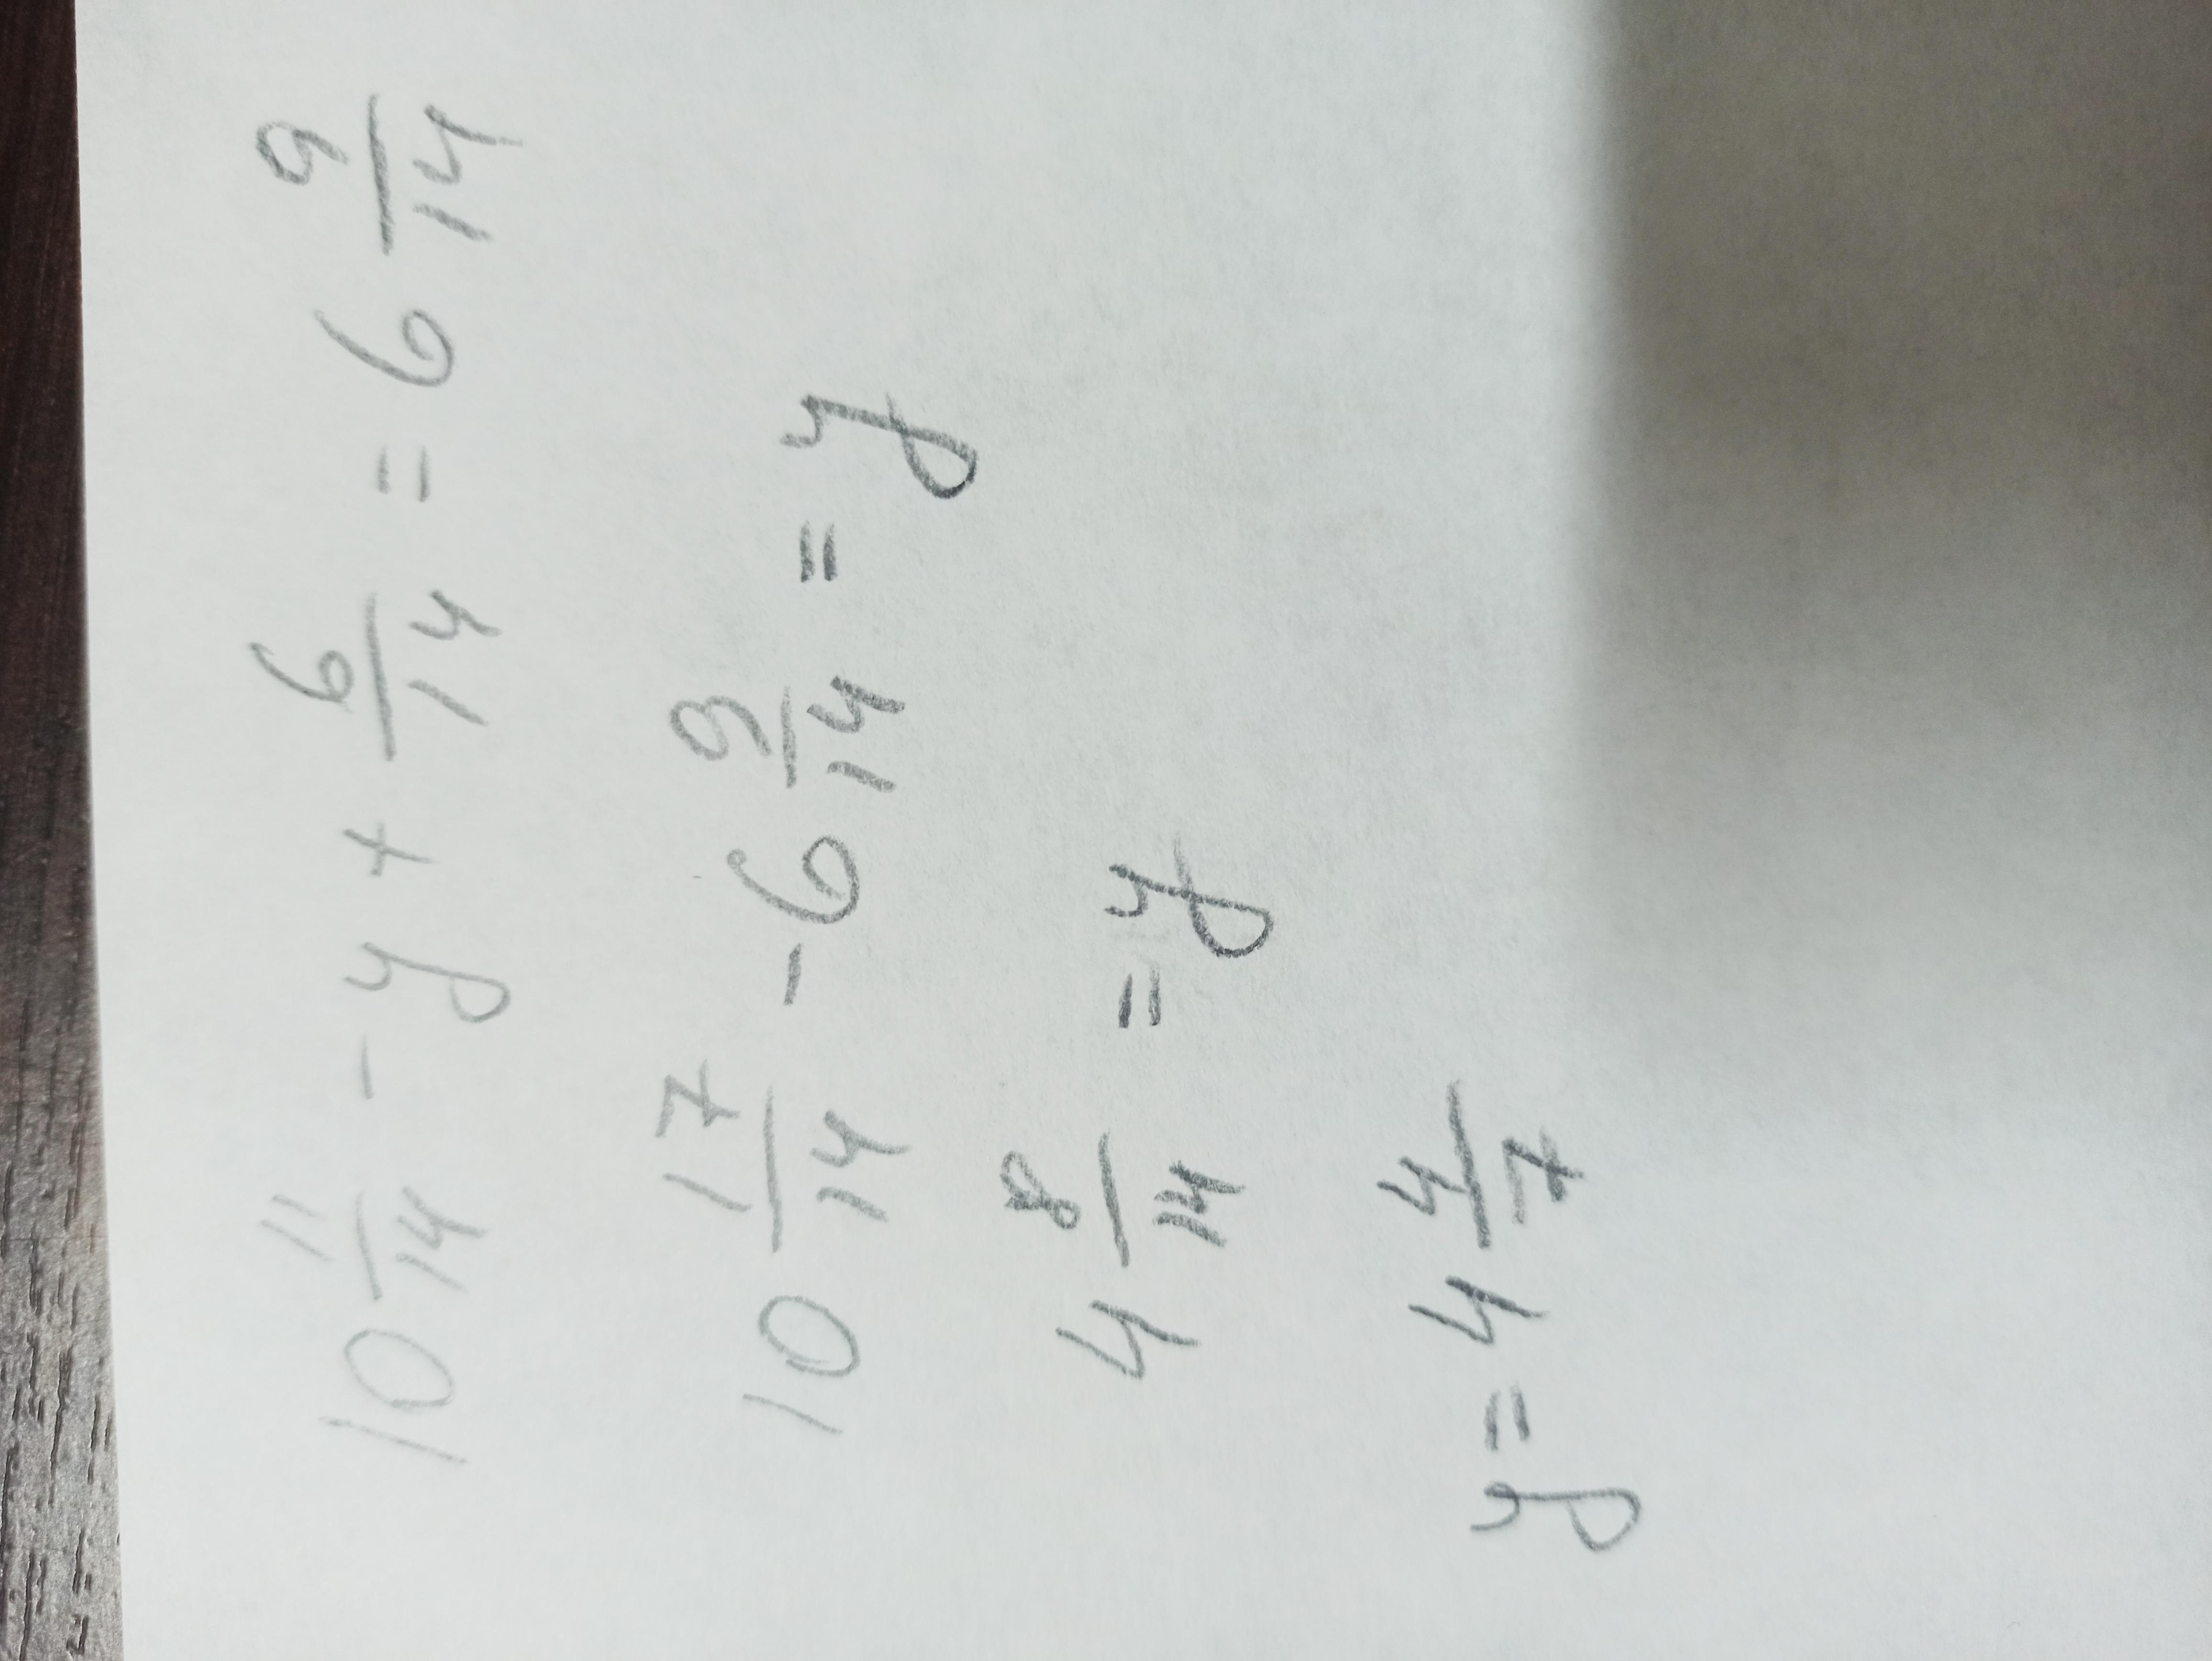 10 11/14 - y + 6/14 = 6 9/14
10 17/14 - 6 9/14 = y
4 8/14 = y
y = 4 4/7